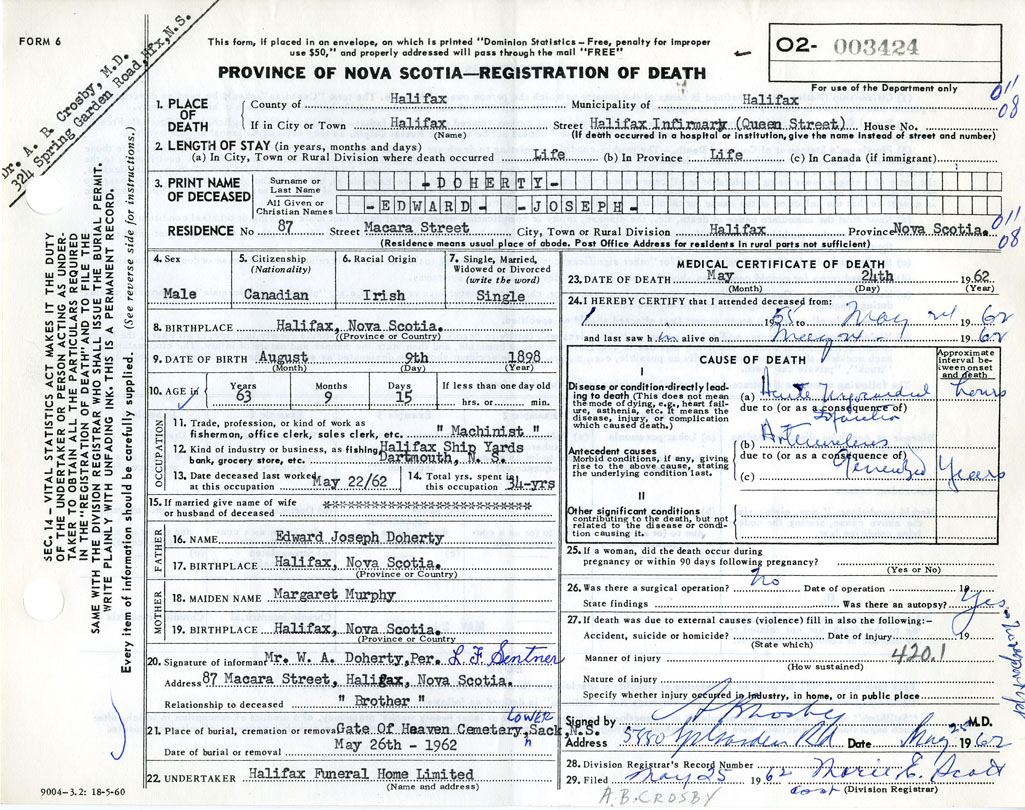 FORM 6
Dr. A. B. Crosby, M.D.
324 Spring Garden Road, Hfx, N.S.
This form, if placed in an envelope, on which is printed "Dominion Statistics – Free, penalty for improper
use $50," and properly addressed will pass through the mail "FREE"
PROVINCE OF NOVA SCOTIA—REGISTRATION OF DEATH
O2- 003424
For use of the Department only
011
08
SEC. 14 – VITAL STATISTICS ACT MAKES IT THE DUTY
OF THE UNDERTAKER OR PERSON ACTING AS UNDER-
TAKER TO OBTAIN ALL THE PARTICULARS REQUIRED
IN THE "REGISTRATION OF DEATH" AND FILE THE
SAME WITH THE DIVISION REGISTRAR WHO SHALL ISSUE THE BURIAL PERMIT.
WRITE PLAINLY WITH UNFADING INK. THIS IS A PERMANENT RECORD.
Every item of information should be carefully supplied. (See reverse side for instructions.)
1. PLACE OF DEATH
County of Halifax Municipality of Halifax
If in City or Town Halifax Street Halifax Infirmary (Queen Street) House No.
(Name) (If death occurred in a hospital or institution, give name instead of street and number)
2. LENGTH OF STAY (in years, months and days)
(a) In City, Town or Rural Division where death occurred Life (b) In Province Life (c) In Canada (if immigrant)
3. PRINT NAME OF DECEASED
Surname or Last Name -DOHERTY-
All Given or Christian Names -EDWARD- -JOSEPH-
RESIDENCE No 87 Street Macara Street City, Town or Rural Division Halifax Province Nova Scotia.
011
08
(Residence means usual place of abode. Post Office Address for residents in rural parts not sufficient)
4. Sex
Male
5. Citizenship
(Nationality)
Canadian
6. Racial Origin
Irish
7. Single, Married, Widowed or Divorced
(write the word)
Single
8. BIRTHPLACE Halifax, Nova Scotia.
(Province or Country)
9. DATE OF BIRTH August 9th 1898
(Month) (Day) (Year)
10. AGE in Years Months Days If less than one day old
63 9 15 hrs. or min.
OCCUPATION
11. Trade, profession, or kind of work as
fisherman, office clerk, sales clerk, etc. " Machinist "
12. Kind of industry or business, as fishing, Halifax Ship Yards
bank, grocery store, etc. Dartmouth, N. S.
13. Date deceased last worked at this occupation May 22/62
14. Total yrs. spent in this occupation 34-yrs
15. If married give name of wife
or husband of deceased ********************
FATHER
16. NAME Edward Joseph Doherty
17. BIRTHPLACE Halifax, Nova Scotia.
(Province or Country)
MOTHER
18. MAIDEN NAME Margaret Murphy
19. BIRTHPLACE Halifax, Nova Scotia.
(Province or Country
20. Signature of informant Mr. W. A. Doherty, Per. L F Sentner
Address 87 Macara Street, Halifax, Nova Scotia.
Relationship to deceased " Brother "
LOWER
21. Place of burial, cremation or removal Gate Of Heaven Cemetery, Sack, N.S.
Date of burial or removal May 26th - 1962
22. UNDERTAKER Halifax Funeral Home Limited
(Name and address)
9004-3.2: 18-5-60
MEDICAL CERTIFICATE OF DEATH
23. DATE OF DEATH May 24th 1962
(Month) (Day) (Year)
24. I HEREBY CERTIFY that I attended deceased from:
1 1955 May 24 1962
and last saw him alive on May 24 - 1962
CAUSE OF DEATH
Approximate interval between onset and death
I
Disease or condition directly lead-
ing to death (This does not mean
the mode of dying, e.g., heart fail-
ure, asthenia, etc. It means the
disease, injury, or complication
which caused death.)
(a) Acute Myocardial hours
due to (or as a consequence of)
Antecedent causes
Morbid conditions, if any, giving
rise to the above cause, stating
the underlying condition last.
(b)
due to (or as a consequence of)
Generalized Years
(c)
II
Other significant conditions
contributing to the death, but not
related to the disease or condi-
tion causing it.
25. If a woman, did the death occur during
pregnancy or within 90 days following pregnancy?
(Yes or No)
26. Was there a surgical operation? no Date of operation 19
State findings Was there an autopsy? Yes
27. If death was due to external causes (violence) fill in also the following:–
Accident, suicide or homicide? Date of injury 19
(State which)
Manner of injury 420.1
(How sustained)
Nature of injury
Specify whether injury occurred in industry, in home, or in public place
Signed by A B Crosby M.D.
Address 5880 Sp Garden Rd Date May 25 1962
28. Division Registrar's Record Number
29. Filed May 25 1962 Marie E. Scott
(Division Registrar)
A.B.CROSBY